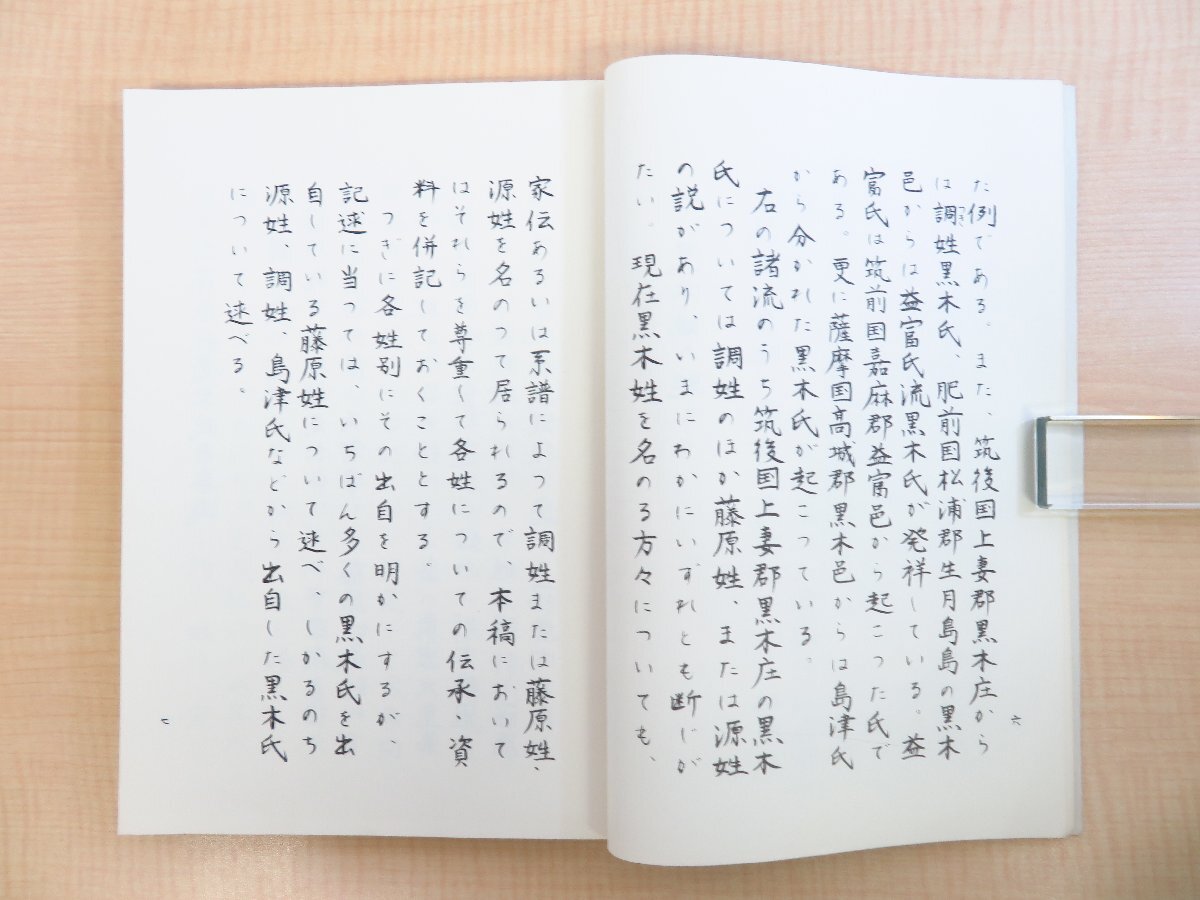 た例である。また、筑後国上妻郡黒木庄から
は調姓黒木氏、肥前国松浦郡生月島島の黒木
邑からは益富氏流黒木氏が発祥している。益
富氏は筑前国嘉麻郡益富邑から起こった氏で
ある。更に薩摩国高城郡黒木邑からは島津氏
から分かれた黒木氏が起こっている。
右の諸流のうち筑後国上妻郡黒木庄の黒木
氏については調姓のほか藤原姓、または源姓
の説があり、いまにわかにいずれとも断じが
たい。現在黒木姓を名のる方々についても、
六
家伝あるいは系譜によって調姓または藤原姓、
源姓を名のって居られるので、本稿において
はそれらを尊重して各姓についての伝承・資
料を併記しておくこととする。
つぎに各姓別にその出自を明かにするが、
記述に当っては、いちばん多くの黒木氏を出
自している藤原姓について述べ、しかるのち
源姓、調姓、島津氏などから出自した黒木氏
について述べる。
七